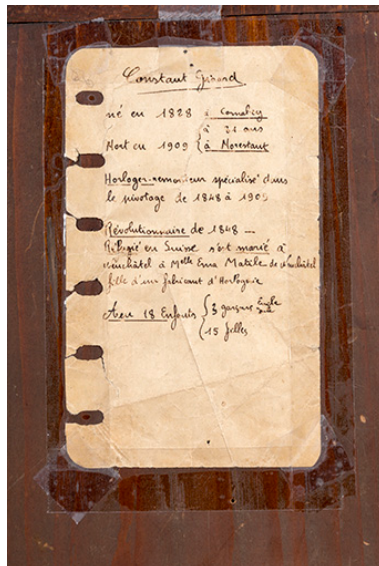 Constant Girard
né en 1828 à Cornabey
à 21 ans
Mort en 1909 à Morestant
Horloger-remonteur spécialisé dans
le pivotage de 1848 à 1909
Révolutionnaire de 1848 —
Réfugié en Suisse s'est marié à
Neuchâtel à Melle Ema Matile de Neuchâtel
fille d'un fabricant d'Horlogerie
A eu 18 Enfants 3 garçons
15 filles